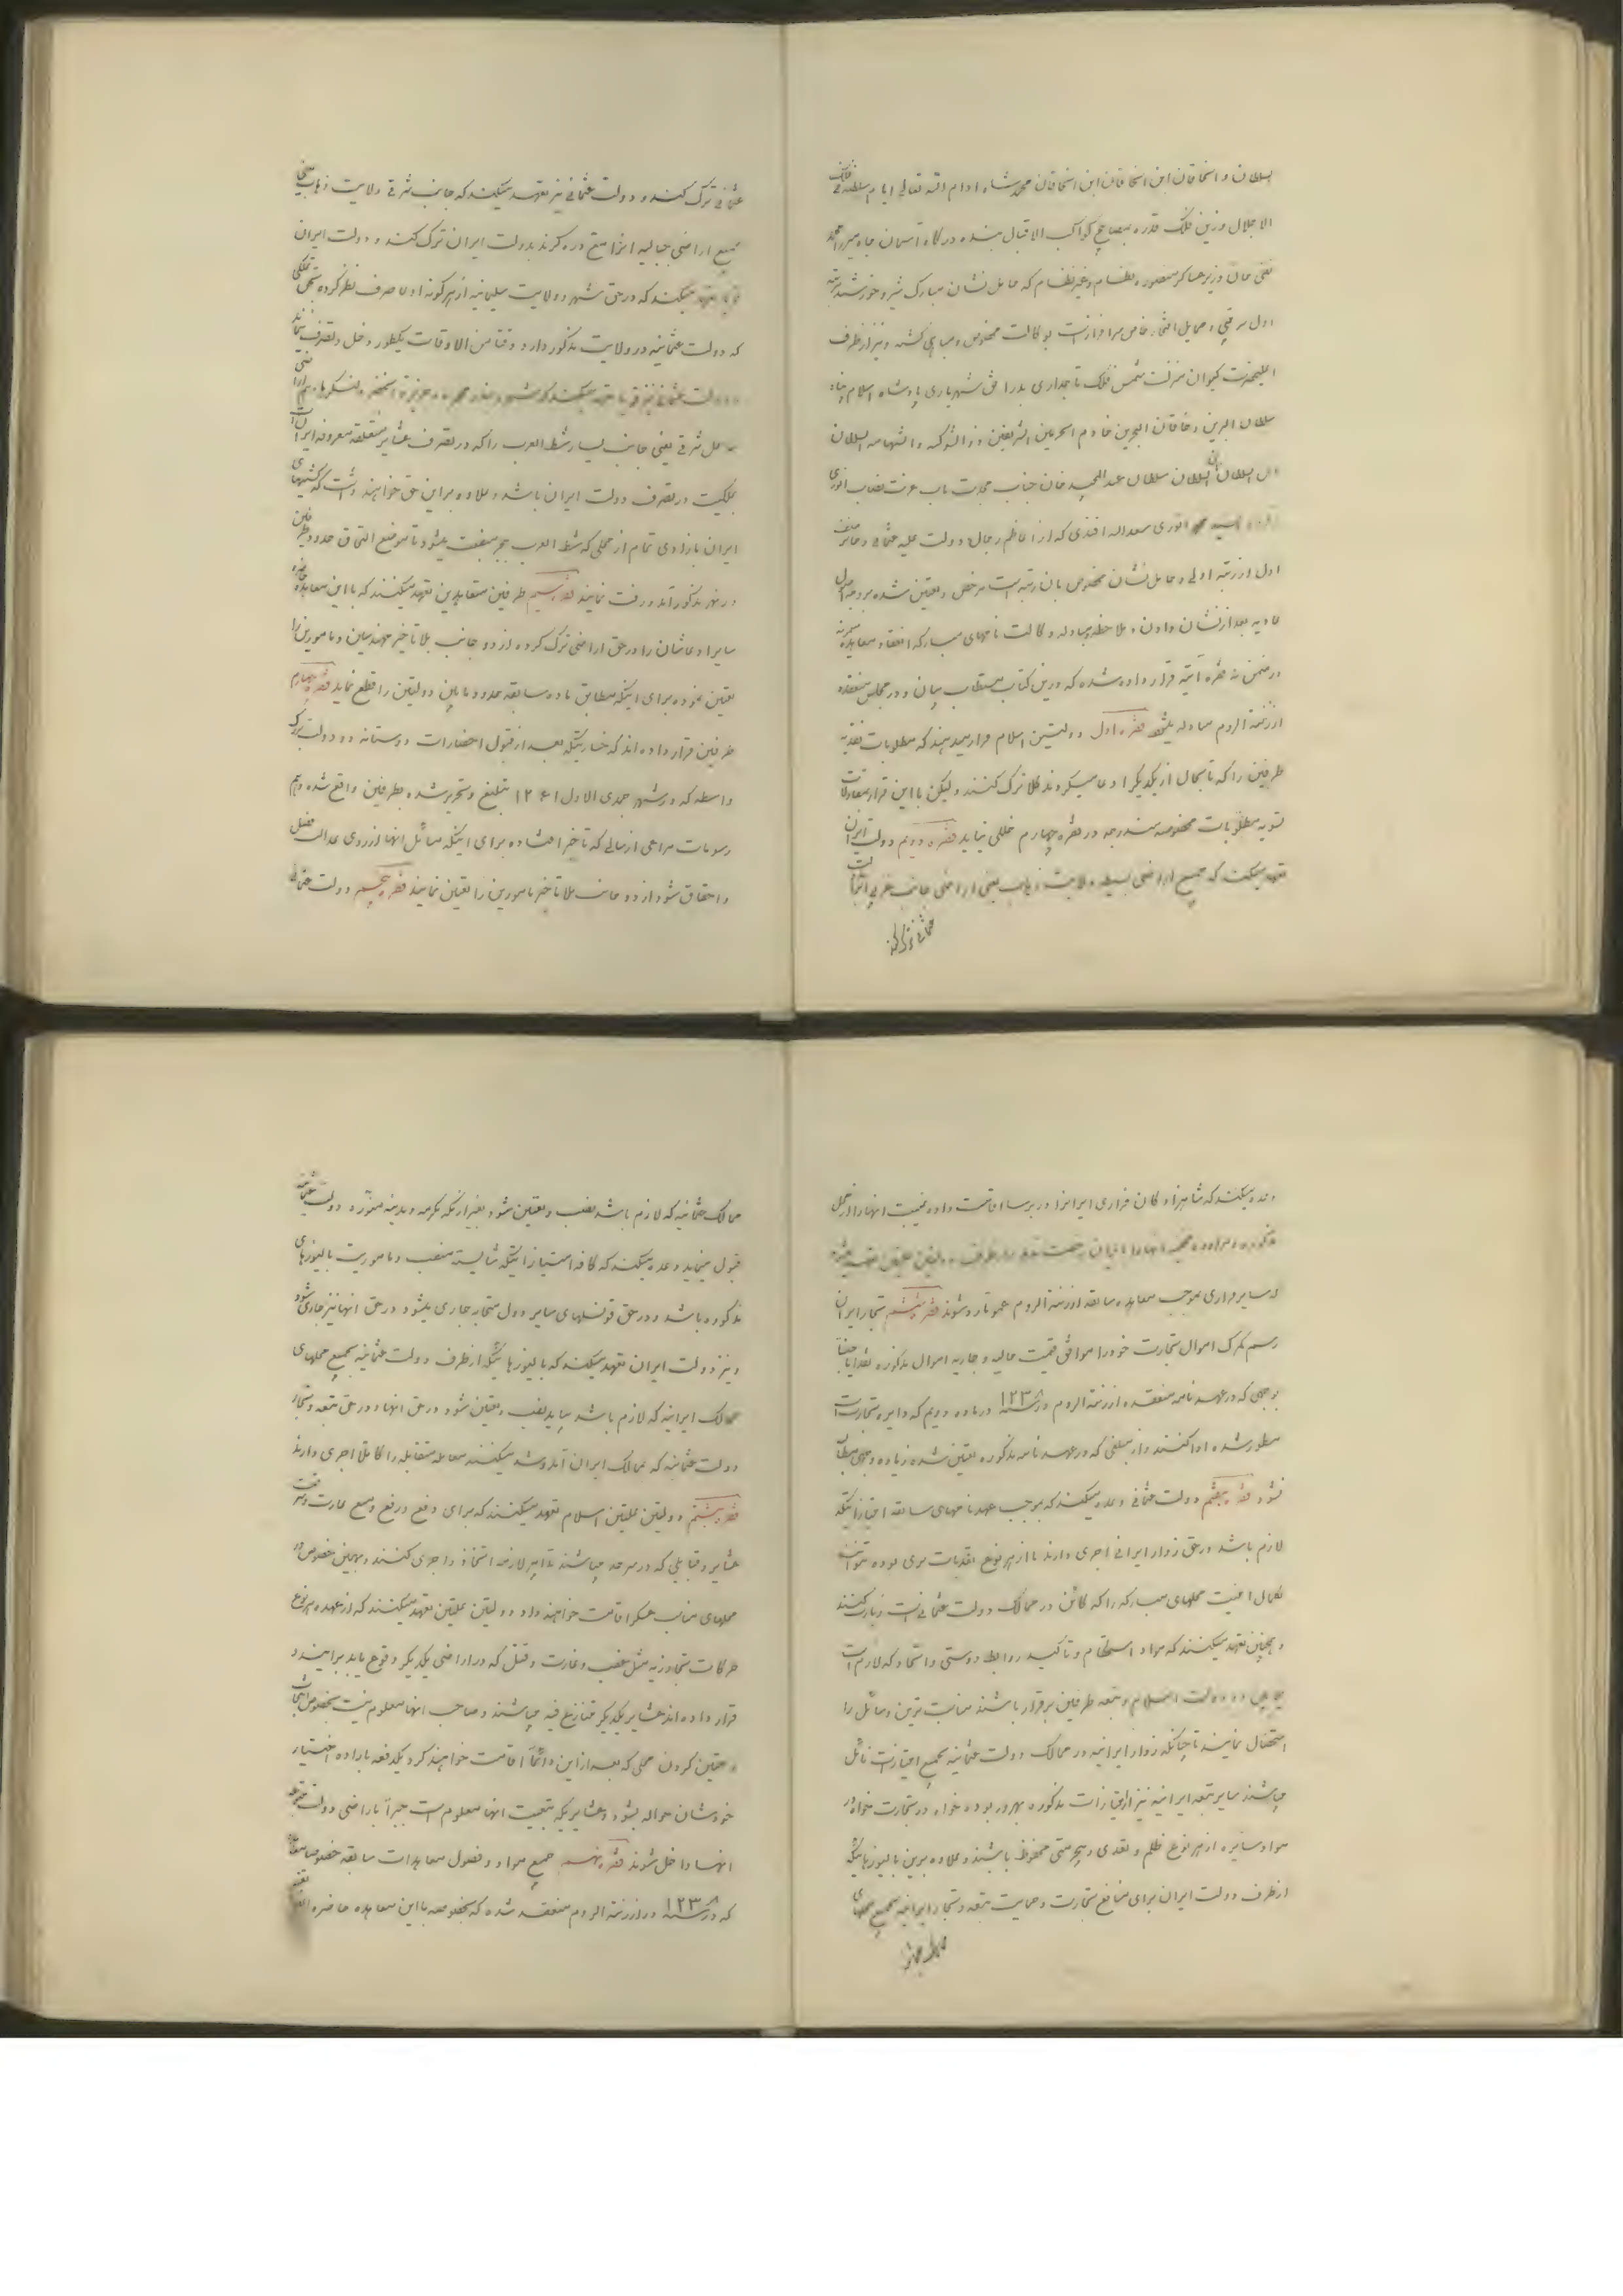 السلطان و الخاقان ابن الخاقان ابن الخاقان محمد شاه ادام الله تعالی ایام سلطنته فلک
الاجلال وزین فلک قدر مصابیح کواکب الاقبال بنده درگاه آسمان جاه میرزا محمد
تقی خان وزیر عساکر منصوره نظام و غیر نظام که حامل نشان مبارک شیر و خورشید مرتبه
اول سرتیپی و حمایل افتخار خاص سرافراز است بوکالت مخصوص و مباهی گشته و نیز از طرف
اعلیحضرت کیوان منزلت شمس فلک تاجداری بدر افق شهریاری پادشاه اسلام پناه
سلطان البرین و خاقان البحرین خادم الحرمین الشریفین ذو الشوکه والشهامه السلطان
ابن السلطان السلطان سلطان عبدالمجید خان جناب مجدت مآب عزت نصاب انوری
انوری سعدالله افندی که از اعاظم رجال دولت علیه عثمانی و حائز صنف
اول از رتبه اولی و حامل نشان مخصوص بان رتبه است مرخص و تعیین شده بر وجه اصول
عادیه بعد از نشان دادن و ملاحظه و مبادله وکالت نامهای مبارکه انعقاد معاهده
در ضمن نه فقره آتیه قرار داده شده که درین کتاب مستطاب بیان و در مجلس منعقده
ارزنة الروم مبادله میشود فقره اول دولتین اسلام قرار میدهند که مطلوبات نقدیه
طرفین را که تا بحال از یکدیگر ادعا میکردند کلا ترک کنند ولیکن با این قرار بمقاولات
تسویه مطلوبات مخصوصه مندرجه در فقره چهارم خللی نیاید فقره دویم دولت ایران
تعهد میکند که جمیع اراضی بسیطه ولایت زهاب یعنی اراضی جانب غربی آنرا بدولت
عثمانی ترک کند
عثمانی ترک کند و دولت عثمانی نیز تعهد میکند که جانب شرقی ولایت زهاب یعنی
جمیع اراضی جبالیه آنرا مع دره کرند بدولت ایران ترک کند و دولت ایران
قویا تعهد میکند که در حق شهر و ولایت سلیمانیه از هر گونه ادعا صرف نظر کرده بحق تملکی
که دولت عثمانیه در ولایت مذکور دارد وقتا من الاوقات یکطور دخل و تصرف ننماید
و دولت عثمانی نیز قویا تعهد میکند که شهر و بندر محمره و جزیرة الخضر و لنگرگاه و هم اراضی
ساحل شرقی یعنی جانب یسار شط العرب را که در تصرف عشایر متعلقه معروفه ایران است
بملکیت در تصرف دولت ایران باشد و علاوه بر این حق خواهند داشت که کشتیهای
ایران بازادی تمام از محلی که شط العرب ببحر منصب میشود تا موضع التحاق حدود طرفین
در نهر مذکور آمد و رفت نمایند فقره سیم طرفین متعاهدین تعهد میکنند که با این معاهده حاضره
سایر ادعاشان را در حق اراضی ترک کرده از دو جانب بلا تاخیر مهندسین و مامورین را
تعیین نموده برای اینکه مطابق ماده سابقه حدود مابین دولتین را قطع نماید فقره چهارم
طرفین قرار داده اند که خساراتیکه بعد از قبول اخطارات دوستانه دو دولت بزرگ
واسطه که در شهر جمدی الاول ۱۲۶۱ تبلیغ و تحریر شده بطرفین واقع شده و هم
رسومات مراعی از سالی که تاخیر افتاده برای اینکه مسائل آنها از روی عدالت فصل
و احقاق شود از دو جانب بلا تاخیر مامورین را تعیین نمایند فقره پنجم دولت عثمانی
وعده میکند که شاهزادگان فراری ایرانرا در برسا اقامت داده غیبت آنها را از محل
مذکوره و مراوده مخفیه آنها را با ایران رخصت ندهد و از طرف دولتین علیتین تعهد میشود
که سایر فراری بموجب معاهده سابقه ارزنة الروم عموما رد شوند فقره ششم تجار ایران
رسم گمرک اموال تجارت خود را موافق قیمت حالیه و جاریه اموال مذکوره نقدا یا جنسا
بوجهی که در عهد نامه منعقده ارزنة الروم در سنه ۱۲۳۸ در ماده دویم که دایر بتجارت است
مسطور شده ادا کنند و از مبلغی که در عهد نامه مذکوره تعیین شده زیاده وجهی مطالبه
نشود فقره هفتم دولت عثمانی وعده میکند که بموجب عهد نامهای سابقه امتیازاتیکه
لازم باشد در حق زوار ایرانی اجری دارند تا از هر نوع تعدیات بری بوده بتوانند
بکمال امنیت محلهای مبارکه را که کائن در ممالک دولت عثمانی است زیارت کنند
و همچنین تعهد میکنند که مراد استحکام و تاکید روابط دوستی و اتحاد که لازم است
مابین دو دولت اسلام و تبعه طرفین برقرار باشند مناسب ترین وسائل را
استحصال نمایند تا چنانکه زوار ایرانیه در ممالک دولت عثمانیه بجمیع امتیازات نائل
میباشند سایر تبعه ایرانیه نیز از امتیازات مذکوره بهره ور بوده خواه در تجارت خواه در
مواد سایره از هر نوع ظلم و تعدی و بیحرمتی محفوظ باشند و علاوه برین بالیوزهائیکه
از طرف دولت ایران برای منافع تجارت و حمایت تبعه و تجار ایرانیه بجمیع محلهای
ممالک عثمانیه
ممالک عثمانیه که لازم باشد نصب و تعیین شود بغیر از مکه مکرمه و مدینه منوره دولت عثمانیه
قبول مینماید وعده میکند که کافه امتیازاتیکه شایسته منصب و ماموریت بالیوزهای
مذکوره باشد و در حق قونسلهای سایر دول متحابه جاری میشود در حق آنها نیز جاری شود
و نیز دولت ایران تعهد میکند که بالیوزهائیکه از طرف دولت عثمانیه بجمیع محلهای
ممالک ایرانیه که لازم باشد بیاید نصب و تعیین شود در حق آنها و در حق تبعه و تجار
دولت عثمانیه که بممالک ایران آمد و شد میکنند معامله متقابله را کاملا اجری دارند
فقره هشتم دولتین علیتین اسلام تعهد میکنند که برای دفع و رفع و منع غارت و سرقت
عشایر و قبایلی که در سرحد میباشند تدابیر لازمه اتخاذ و اجری کنند و بهمین خصوص در
محلهای مناسب عسکر اقامت خواهند داد دولتین علیتین تعهد میکنند که از عهده هر نوع
حرکات تجاوزیه مثل غصب و غارت و قتل که در اراضی یکدیگر وقوع یابد برایند و
قرار داده اند عشایریکه متنازع فیه میباشند و صاحب آنها معلوم نیست بخصوص انتخاب
و تعیین کردن محلی که بعد از این دائما اقامت خواهند کرد یکدفعه باراده اختیار
خودشان حواله بشود و عشایریکه تبعیت آنها معلوم است جبرا باراضی دولت متبوعه
آنها داخل شوند فقره نهم جمیع مواد و فصول معاهدات سابقه خصوصا معاهده
که در سنه ۱۲۳۸ در ارزنة الروم منعقد شده که بخصوصه با این معاهده حاضره الغا